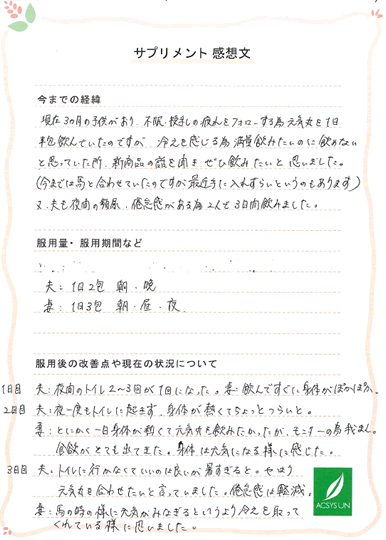 サプリメント 感想文
今までの経緯
現在3カ月の子供がおり、不眠・授乳の疲れをフォローする為元気女を1日
半包飲んでいたのですが、冷えを感じる為満量飲みたいのに飲めない
と思っていた所、新商品の話を聞き、ぜひ飲みたいと思いました。
(今までは馬と合わせていたのですが最近手に入れずらいというのもあります)
又、夫も夜間の頻尿、倦怠感がある為2人で3日間飲みました。
服用量・服用期間など
夫：1日2包 朝・晩
妻：1日3包 朝・昼・夜
服用後の改善点や現在の状況について
1日目 夫：夜間のトイレ2～3回が1回になった。妻：飲んですぐに身体がぽかぽか、
2日目 夫：夜一度もトイレに起きず、身体が熱くてちょっとつらいと。
妻：とにかく一日身体が熱くて元気女を飲みたかったが、モニターの為我まん。
食欲がとても出てきた。身体は元気になる様に感じた。
3日目 夫：トイレに行かなくていいのは良いが暑すぎると。やはり
元気女を合わせたいと言っていました。倦怠感は軽減。
妻：馬の時の様に元気がみなぎるというより冷えを取って
くれている様に思いました。
ACSYS UN